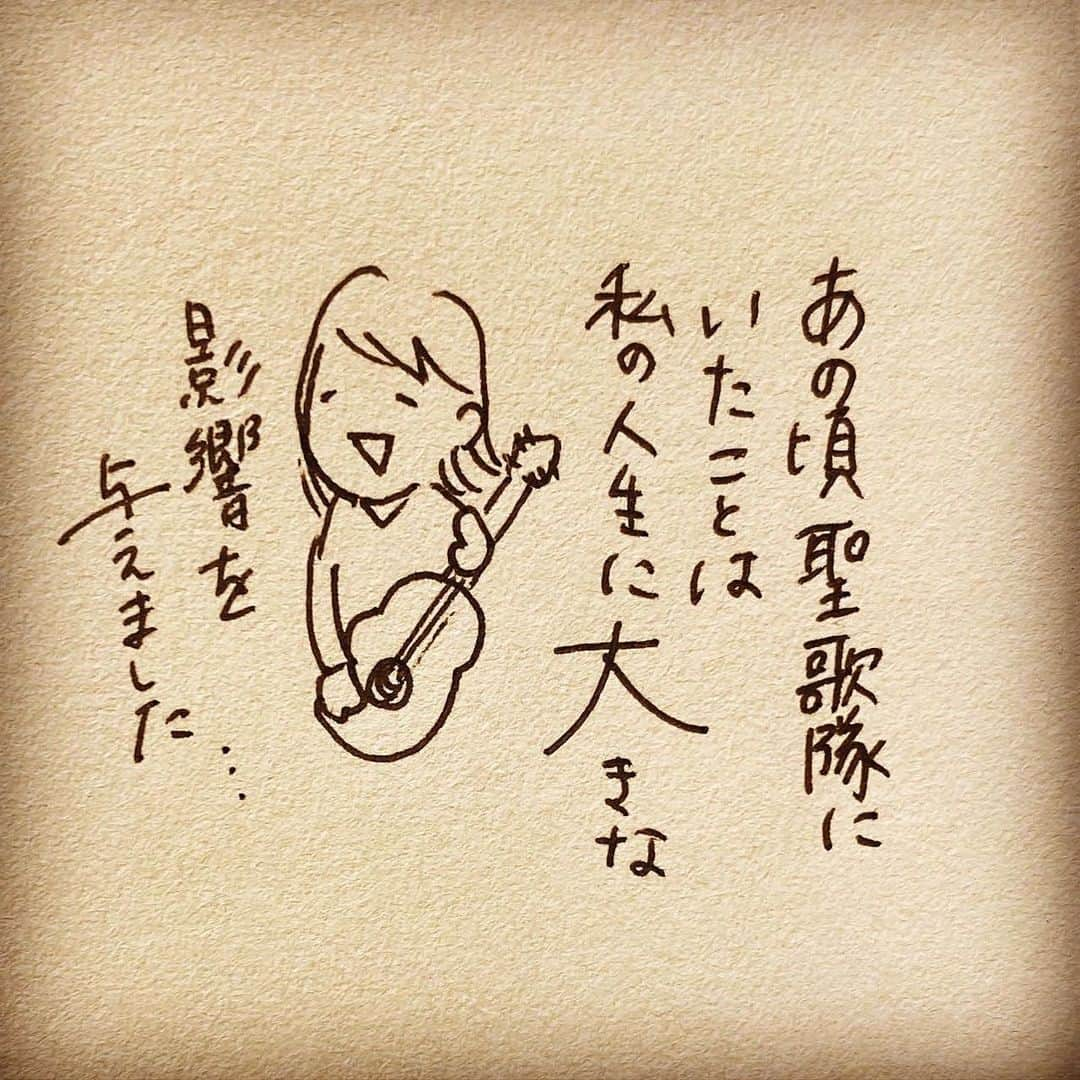 あの頃 聖歌隊に
いたことは
私の人生に大きな
影響を
与えました…